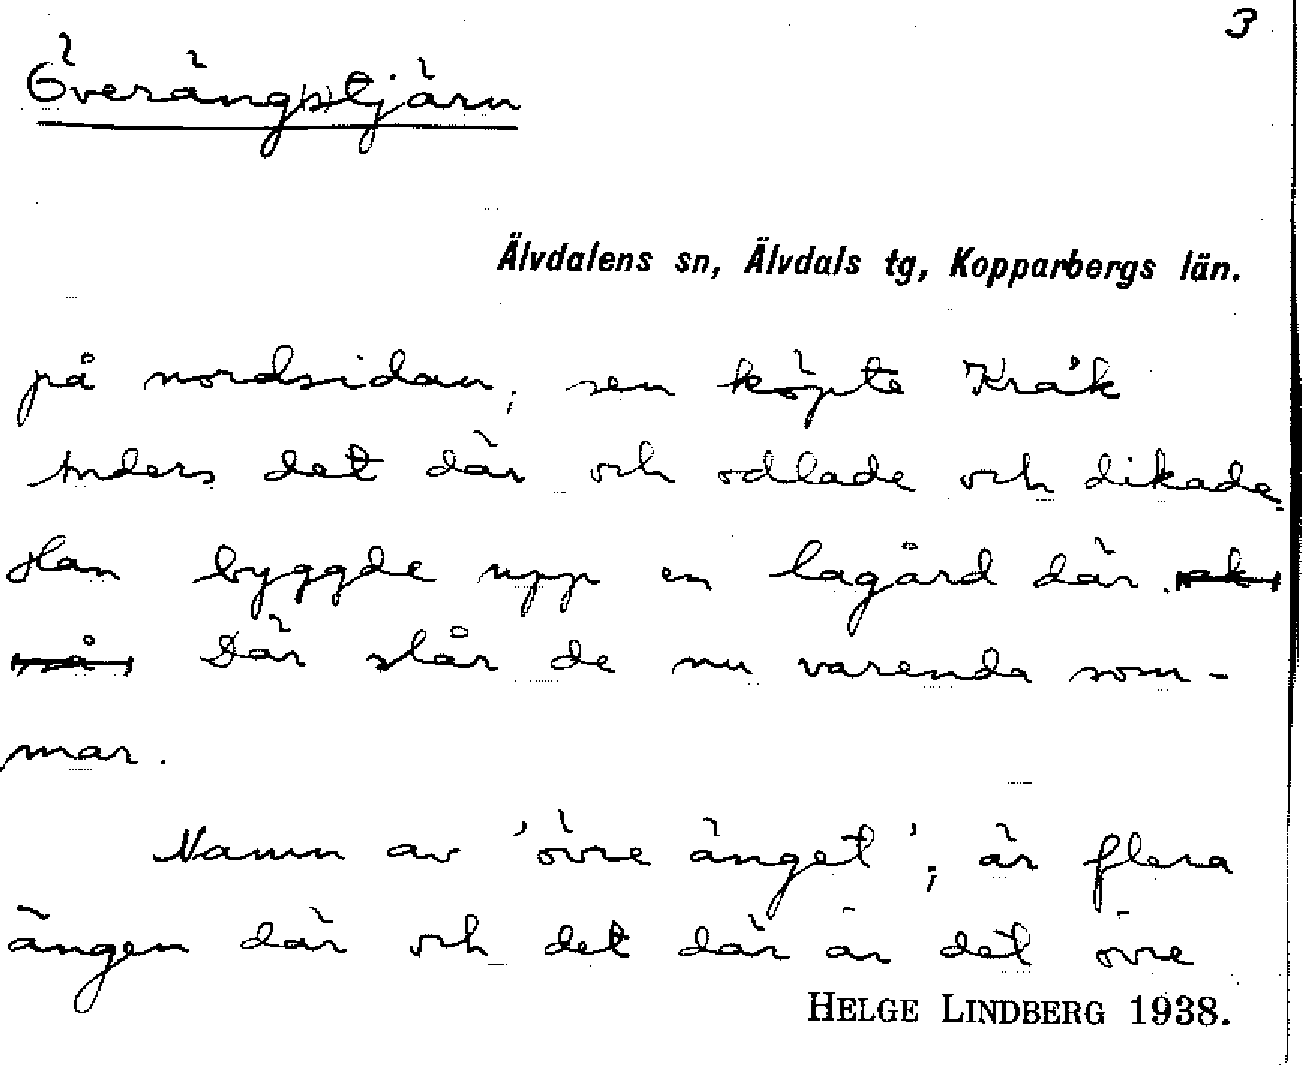 3
Överängstjärn
Älvdalens sn, Älvdals tg, Kopparbergs län.
på nordsidan; sen köpte Kråk
Anders det där och odlade och dikade.
Han byggde upp en lagård där.
Där slår de nu varenda som-
mar.
Namn av 'övre änget'; är flera
ängen där och det där är det övre
HELGE LINDBERG 1938.